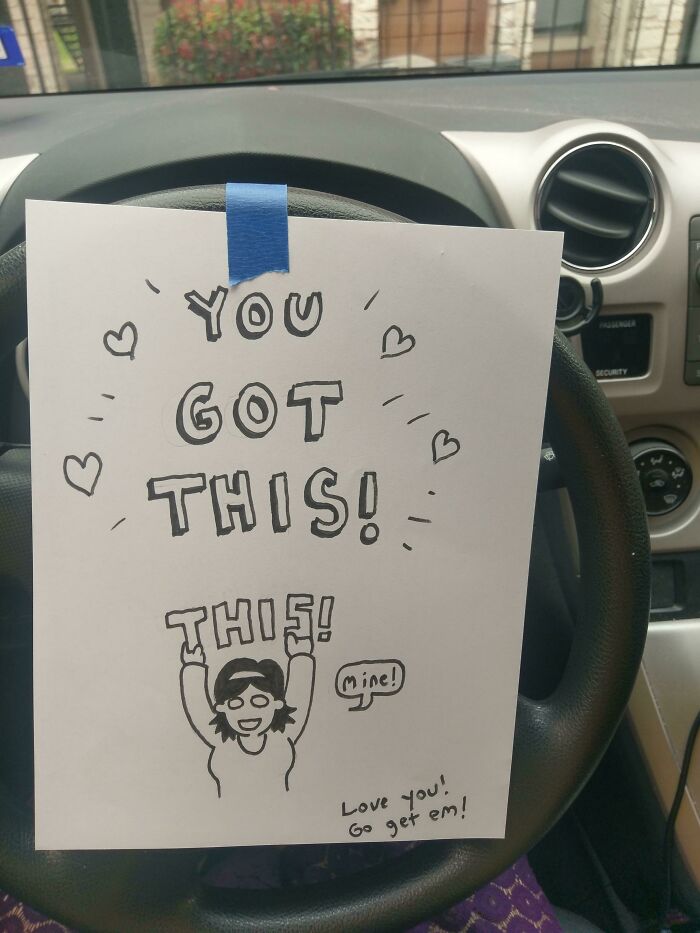 YOU
GOT
THIS!
THIS!
Mine!
Love you!
Go get em!
PASSENGER
SECURITY